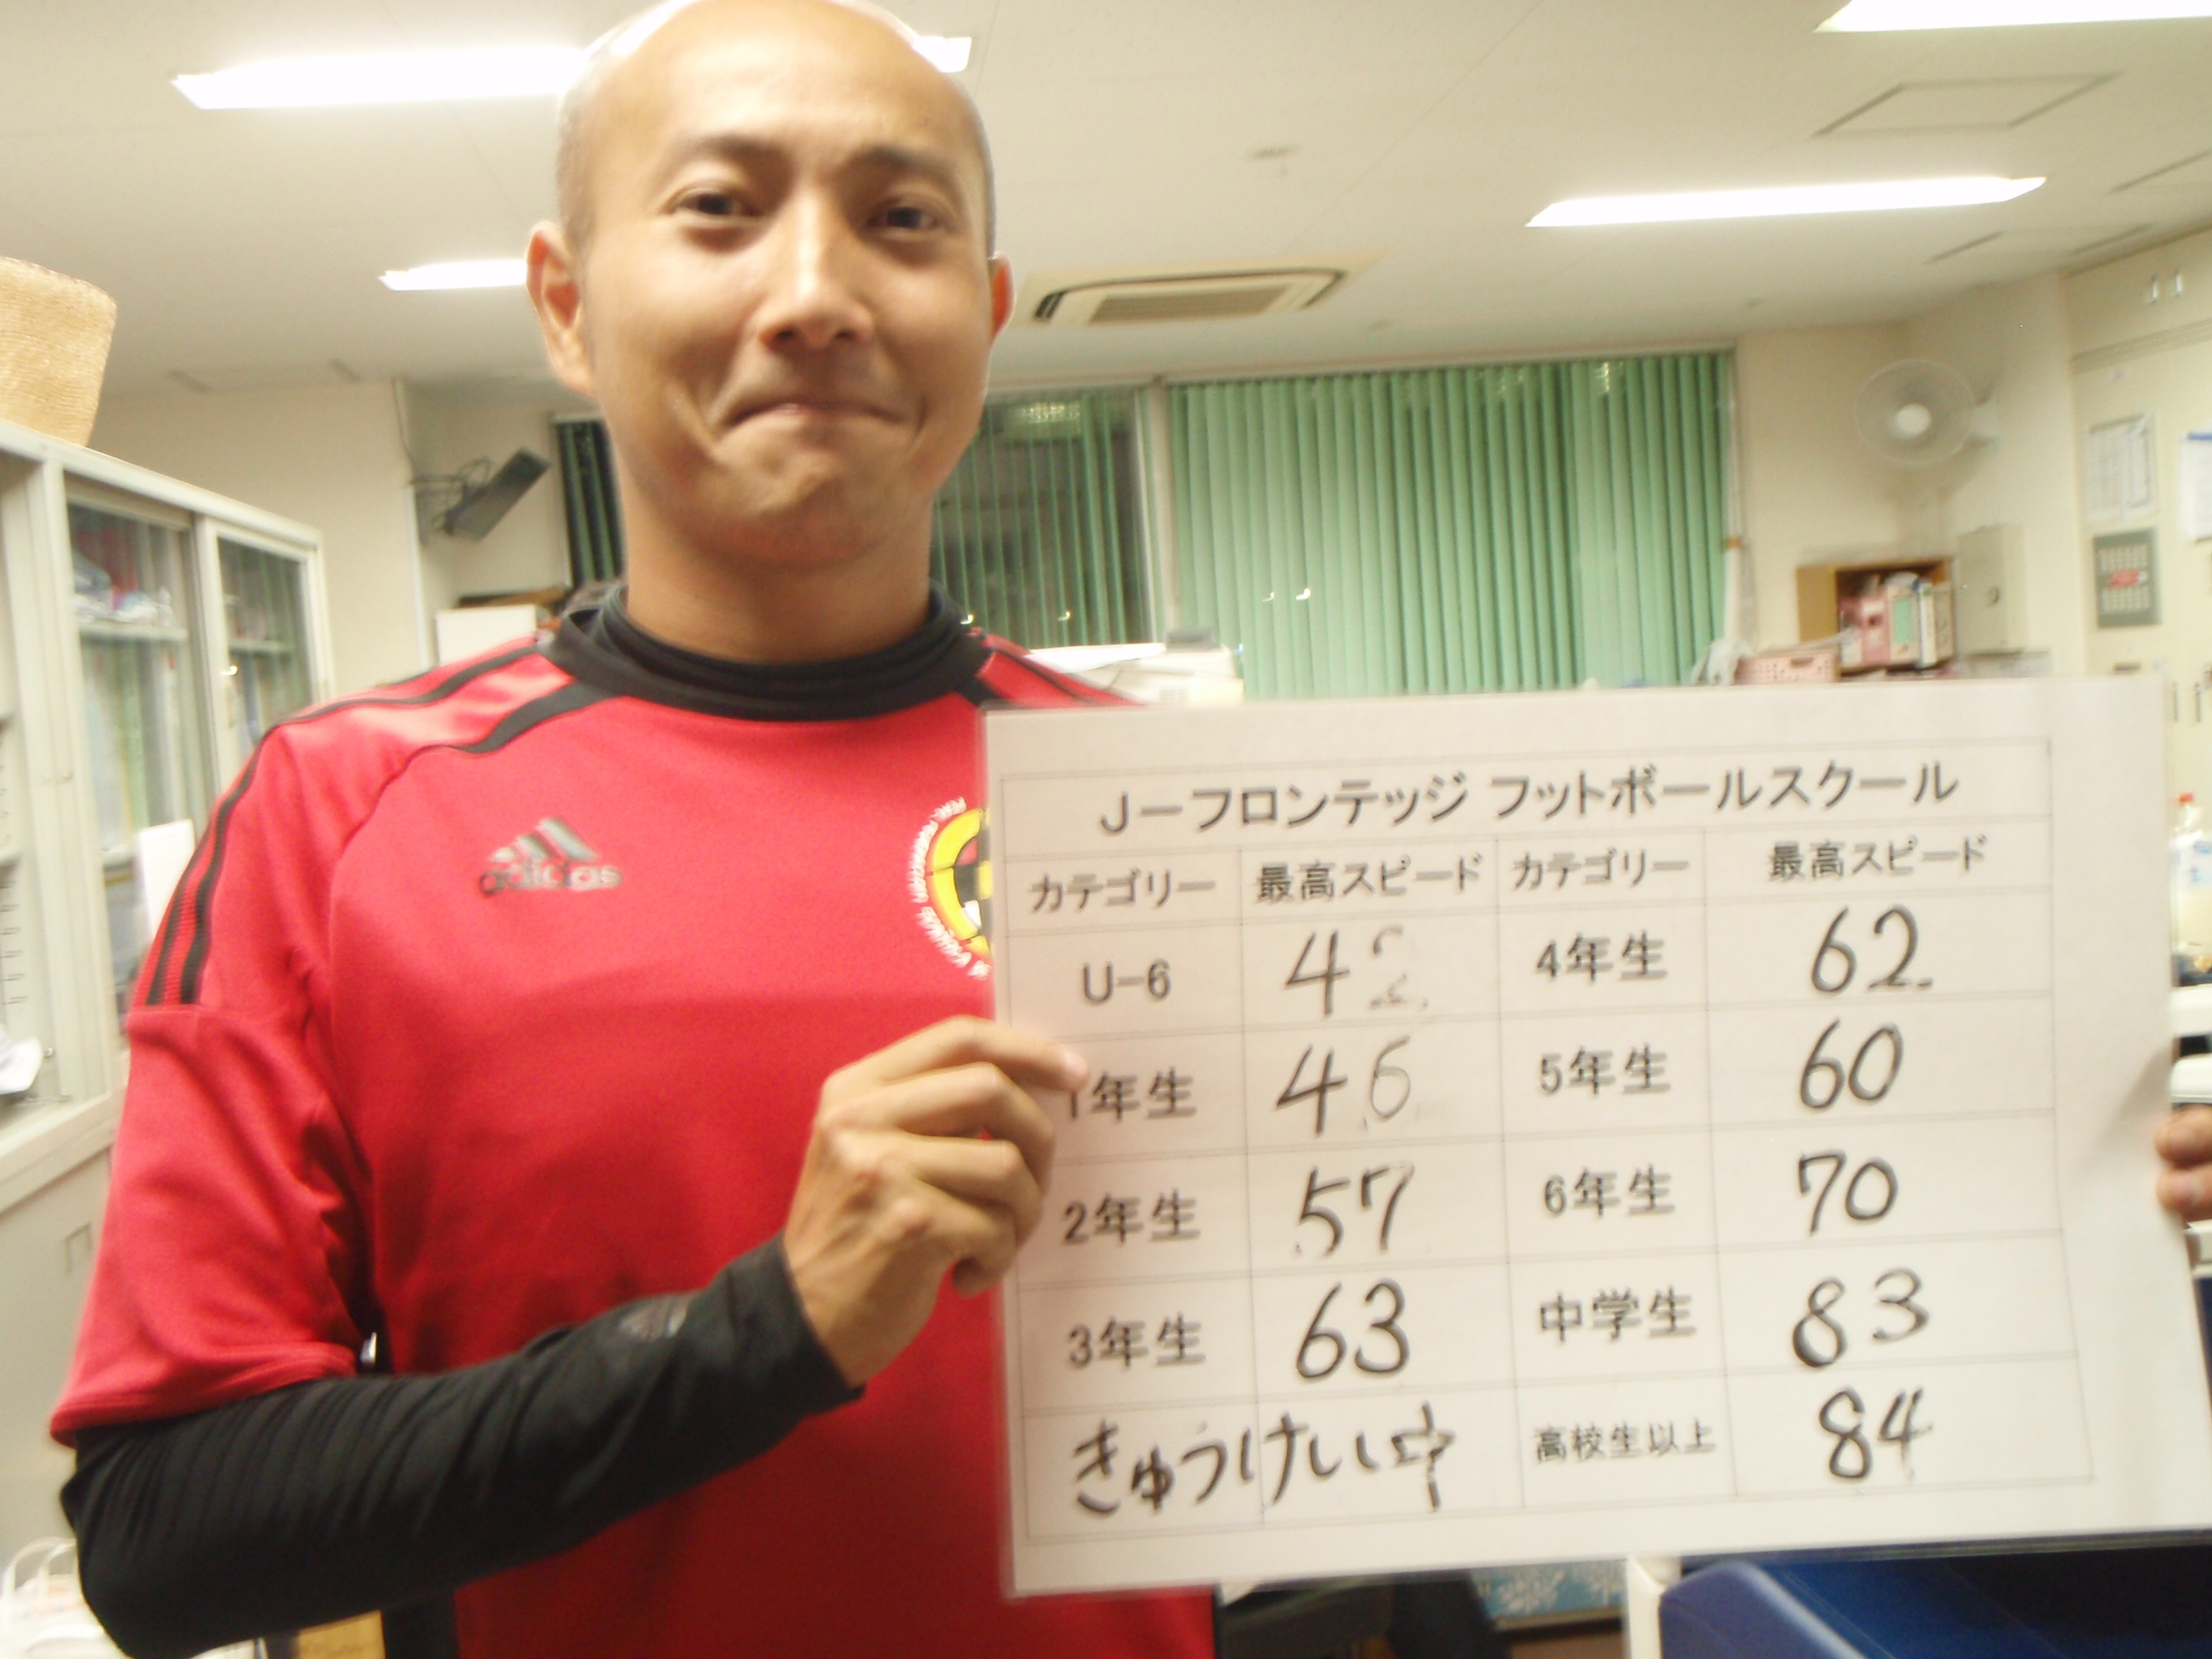 adidas
J－フロンテッジ フットボールスクール
カテゴリー 最高スピード カテゴリー 最高スピード
U-6 42 4年生 62
1年生 46 5年生 60
2年生 57 6年生 70
3年生 63 中学生 83
きゅうけい中 高校生以上 84